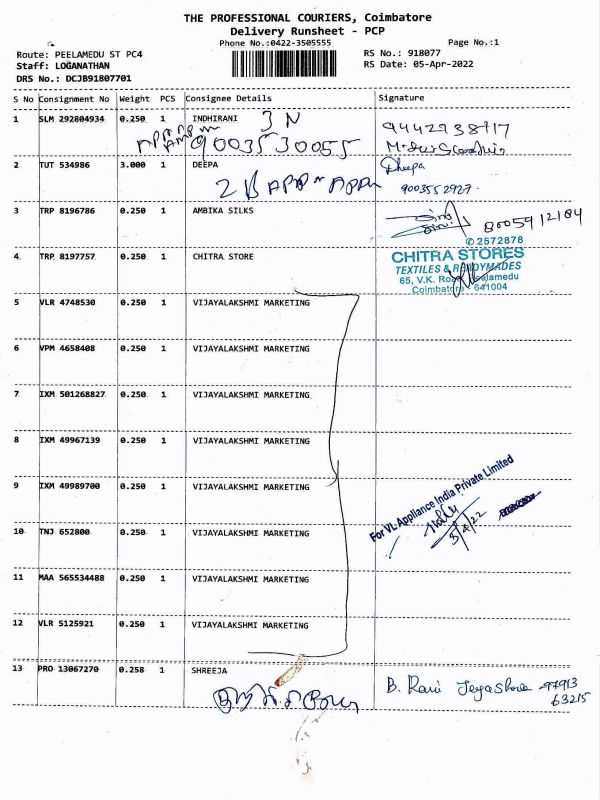 THE PROFESSIONAL COURIERS, Coimbatore
Delivery Runsheet - PCP
Phone No.:0422-3505555
Page No.:1
Route: PEELAMEDU ST PC4
RS No.: 918077
Staff: LOGANATHAN
RS Date: 05-Apr-2022
DRS No.: DCJB91807701
S No Consignment No Weight PCS Consignee Details Signature
1 SLM 292804934 0.250 1 INDHIRANI
3 N
9003530055
2 TUT 534986 3.000 1 DEEPA
Dheepa
9003552927
2 B
3 TRP 8196786 0.250 1 AMBIKA SILKS
4 TRP 8197757 0.250 1 CHITRA STORE
✆ 2572878
CHITRA STORES
TEXTILES & READYMADES
65, V.K. Road, Peelamedu
Coimbatore - 641004
5 VLR 4748530 0.250 1 VIJAYALAKSHMI MARKETING
6 VPM 4658408 0.250 1 VIJAYALAKSHMI MARKETING
7 IXM 501268827 0.250 1 VIJAYALAKSHMI MARKETING
8 IXM 49967139 0.250 1 VIJAYALAKSHMI MARKETING
9 IXM 49989700 0.250 1 VIJAYALAKSHMI MARKETING
For VL Appliance India Private Limited
5/4/22
10 TNJ 652800 0.250 1 VIJAYALAKSHMI MARKETING
11 MAA 565534488 0.250 1 VIJAYALAKSHMI MARKETING
12 VLR 5125921 0.250 1 VIJAYALAKSHMI MARKETING
13 PRO 13067270 0.258 1 SHREEJA
B. Rani 97913
63215